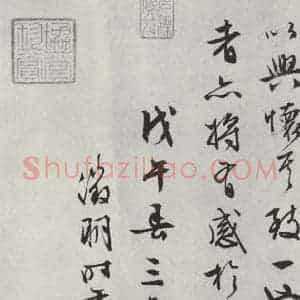 以興懷其致一
者亦将有感於
戊午春三
徵明时
Shufaziliao.COM